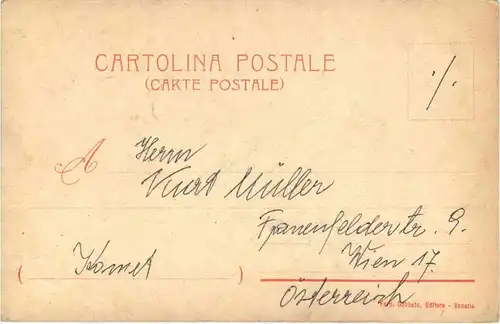 CARTOLINA POSTALE
(CARTE POSTALE)
·/.
A Herrn
Kurt Müller
Frauenfelderstr. 9
Wien 17.
Österreich
(Komet)
Editore - Venezia